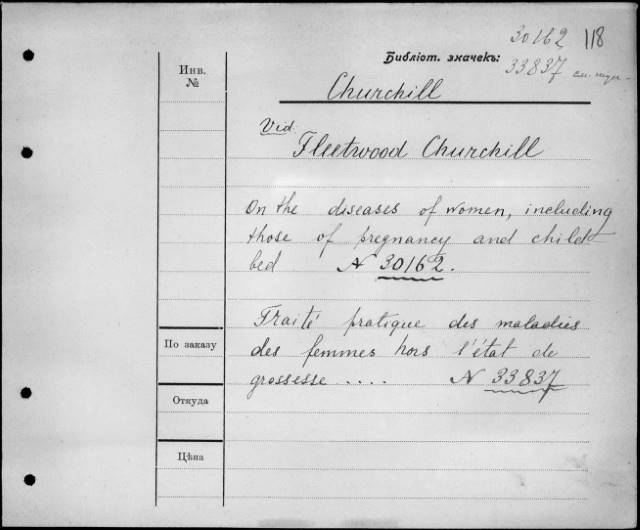 30162 118
Библіот. значекъ: 33837 см.
Инв.
№
Churchill
Vid.
Fleetwood Churchill
On the diseases of women, including
those of pregnancy and child
bed N 30162.
Traité pratique des maladies
des femmes hors l'état de
grossesse .... N 33837
По заказу
Откуда
Цѣна